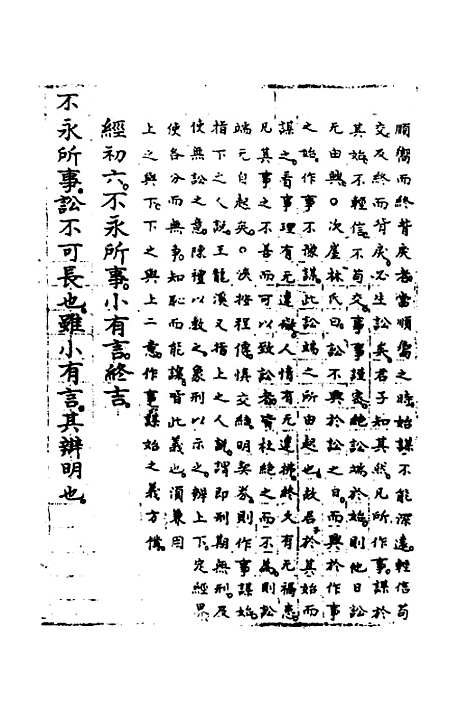 順嚮而終背戾者當順嚮之時始謀不能深遠輕信苟
交及終而背戾必生訟矣君子知其然凡所作事謀於
其始不輕信不苟交事事理審絶訟端於始則他日訟
无由興○次崖林氏曰訟不興於訟之日而興於作事
之始作事不豫謀此訟端之所由起也故君子於其始而
謀之看事理有无違礙人情有无違拂終久有无禍患
凡其事之不善而可以致訟者皆杜絶之而不為則訟
端无自起矣○按程傳慎交結明契券則作事謀始
指下之人說王龍溪又指上之人說謂即刑期無刑及
使無訟之意陳禮以敎之象刑以示之辨上下定經界
使各分而無爭知恥而能讓皆此義也須兼用
上之與下下之與上二意作事謀始之義方備
經初六不永所事小有言終吉
不永所事訟不可長也雖小有言其辨明也